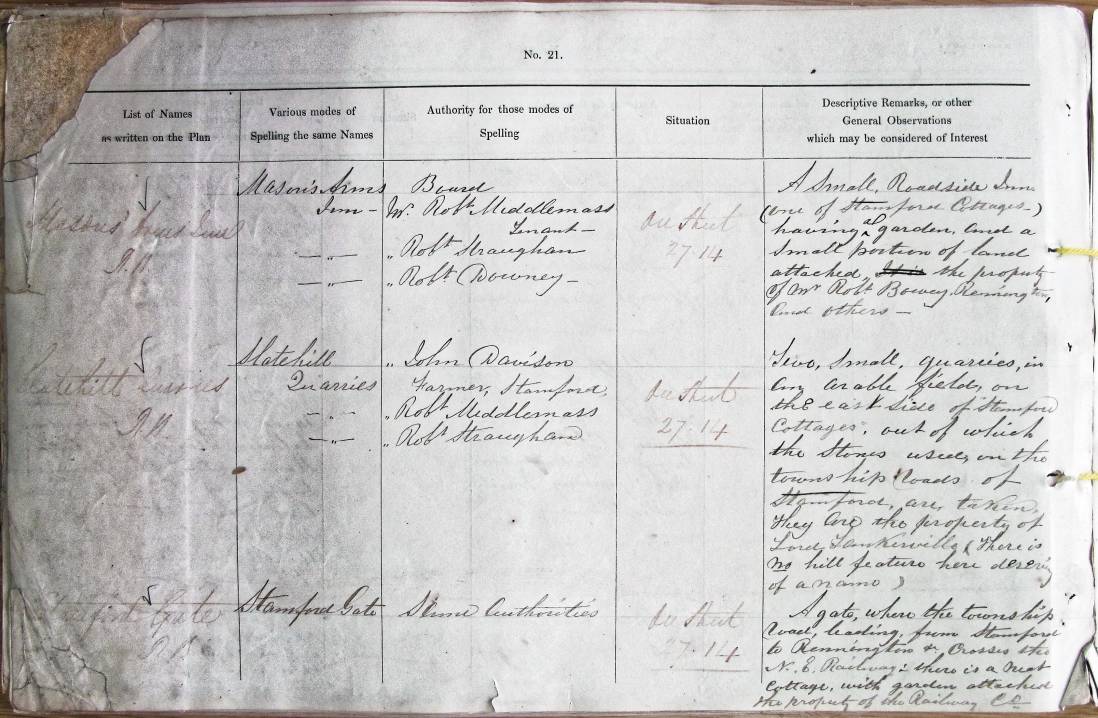 No. 21.
List of Names
as written on the Plan
Various modes of
Spelling the same Names
Authority for those modes of
Spelling
Situation
Descriptive Remarks, or other
General Observations
which may be considered of Interest
Masons' Arms Inn
Mason's Arms
Inn -
— „ —
— „ —
Board
Mr. Robt. Middlemass
Tenant -
„ Robt Straughan
„ Robt Downey -
On Sheet
27.14
A Small, Roadside Inn
(one of Stamford Cottages -)
having a garden, and a
Small portion of land
attached, the property
of Mr Robt Bowey, Rennington,
and others -
Slatehill Quarries
Slatehill
Quarries
— „ —
— „ —
„ John Davison
Farmer, Stamford,
„ Robt Middlemass
„ Robt Straughan
On Sheet
27.14
Two, Small, quarries, in
an arable field, on
the east side of Stamford
Cottages, out of which
the Stones used, on the
township roads of
Stamford, are, taken,
They are the property of
Lord Tankerville (There is
no hill feature here
of a name)
Gate
Stamford Gate
Same Authorities
On Sheet
27.14
A gate, where the township
road, leading, from Stamford
to Rennington &c. Crosses the
N. E. Railway: there is a neat
Cottage, with garden attached
the property of the Railway Co